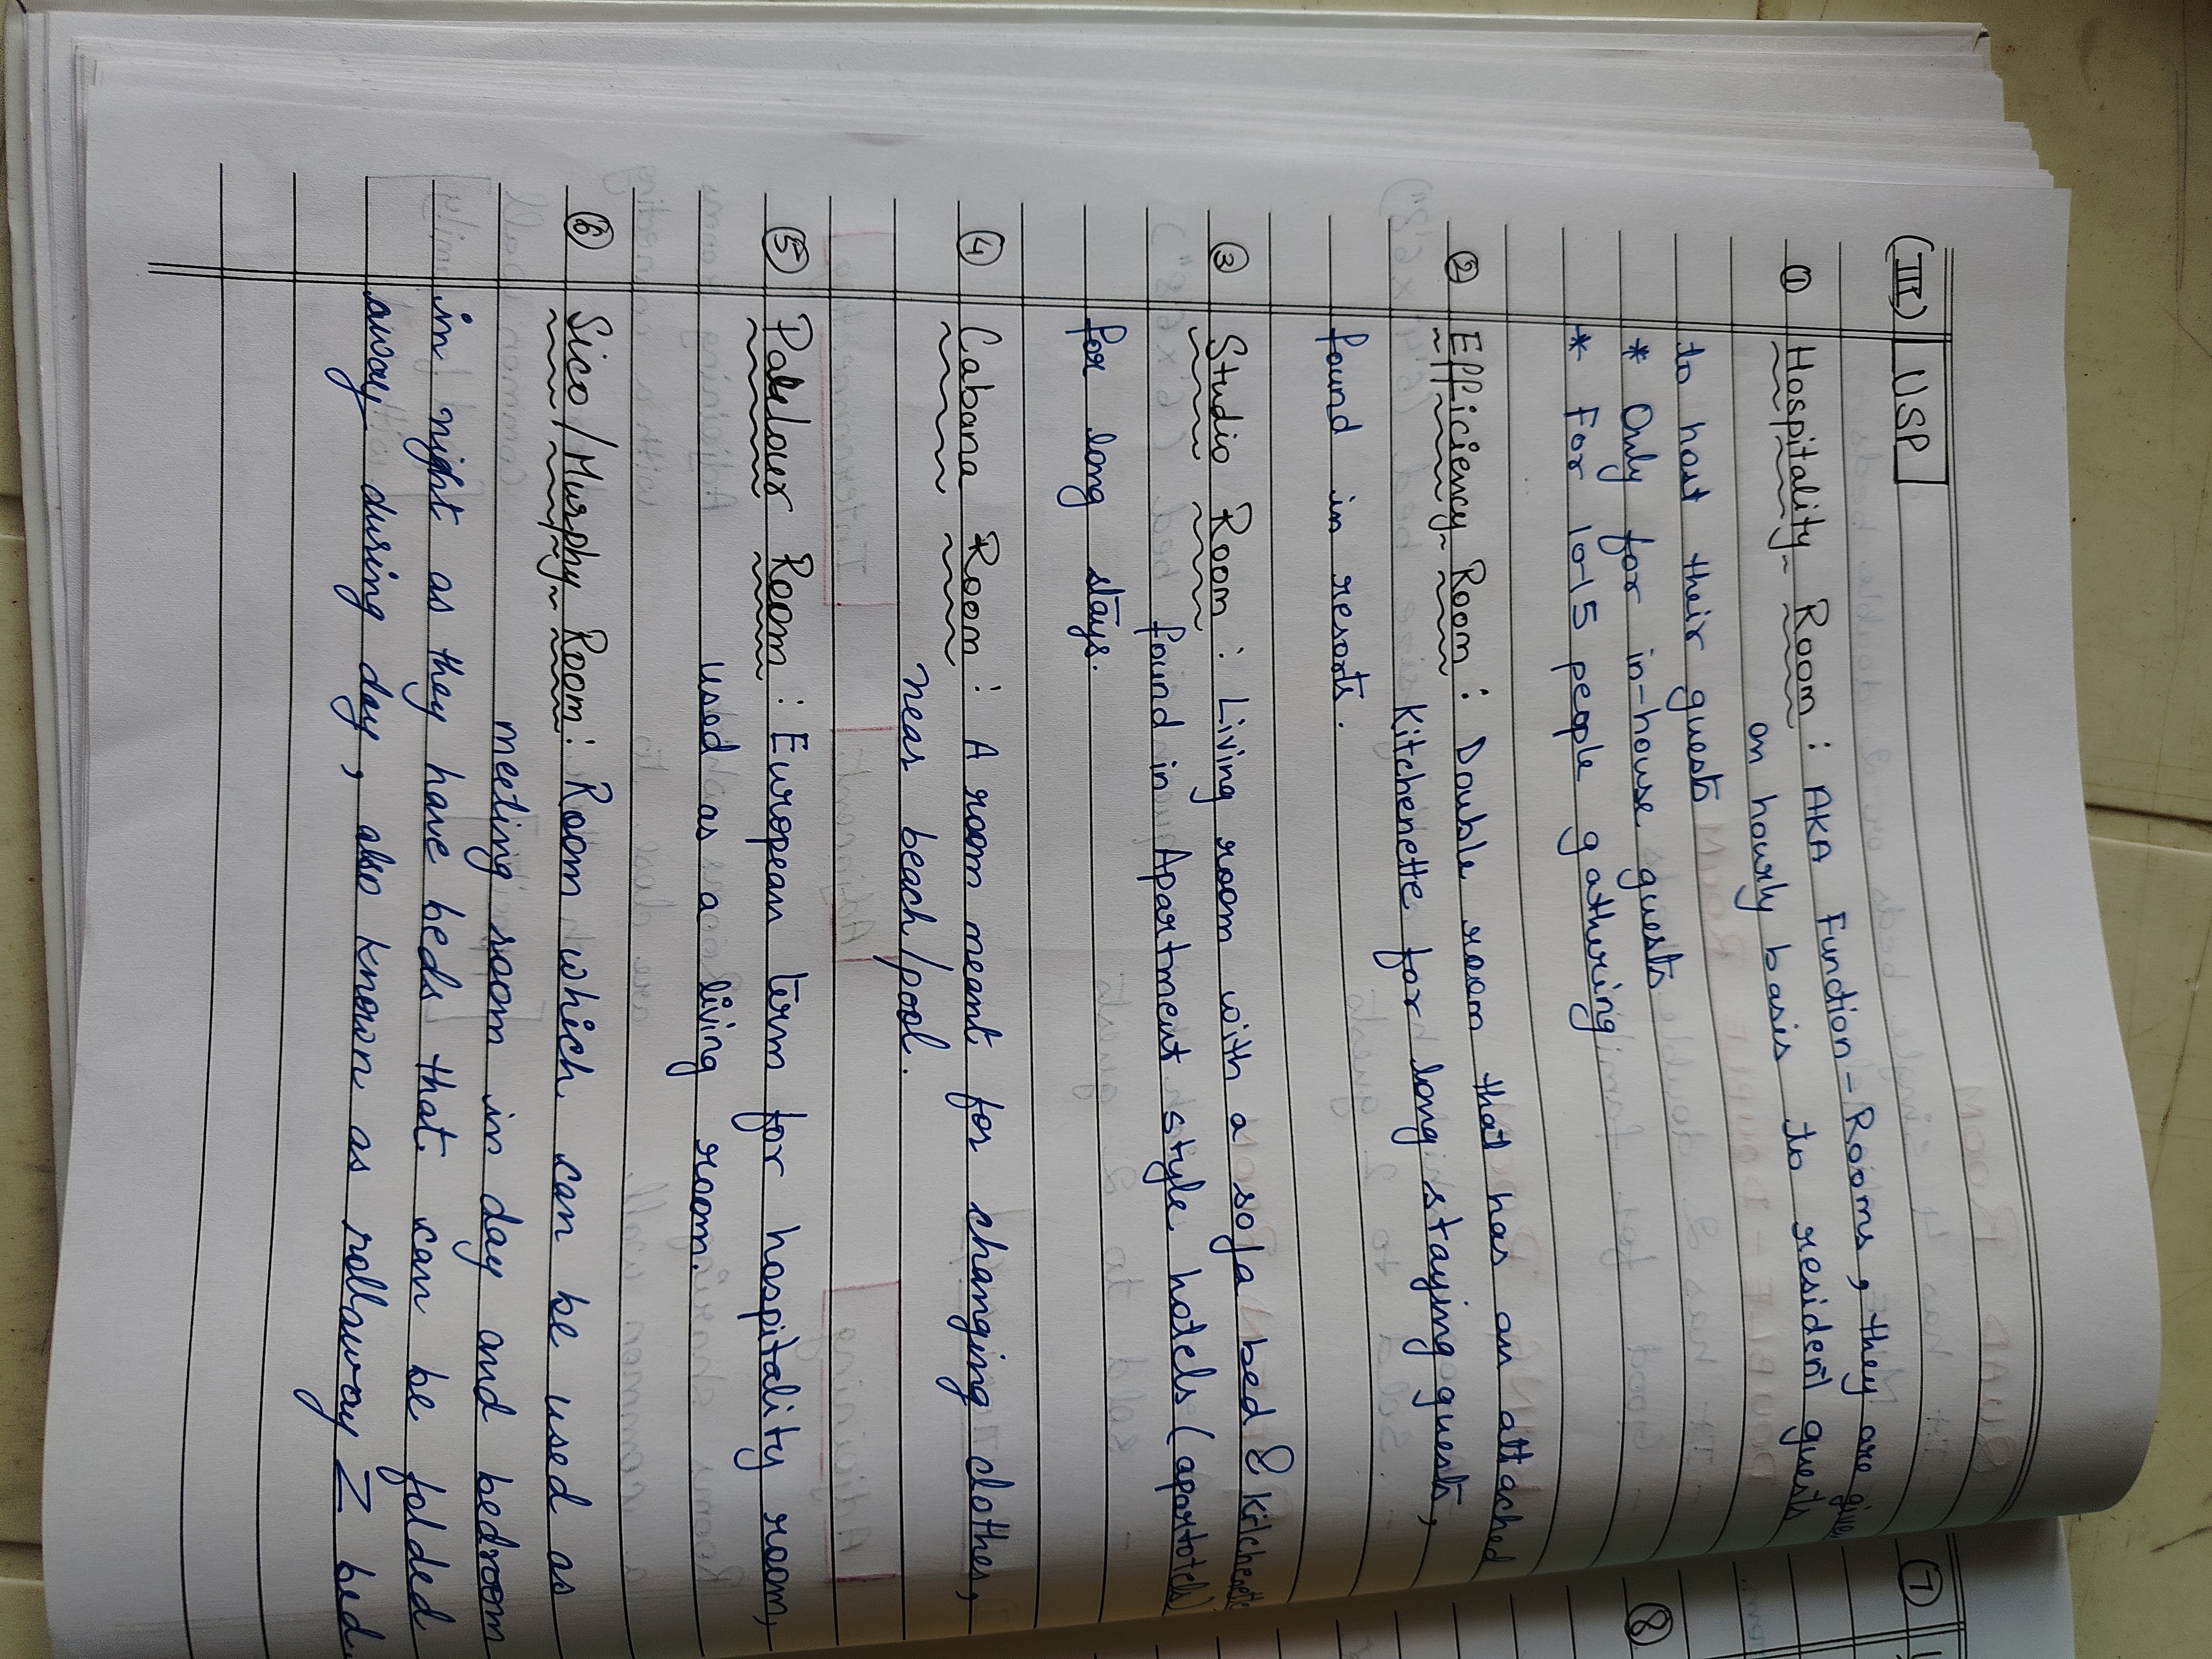 (III) USP
① Hospitality Room : AKA Function-Rooms, they are given
on hourly basis to resident guests
to host their guests
* Only for in-house guests
* For 10-15 people gathering
② Efficiency Room : Double room that has an attached
Kitchenette for long staying guests,
found in resorts.
③ Studio Room : Living room with a sofa bed & kitchenette
found in Apartment style hotels (apartotels)
for long stays.
④ Cabana Room : A room meant for changing clothes,
near beach/pool.
⑤ Room : European term for hospitality room,
used as a living room.
⑥ Sico/Murphy Room : Room which can be used as
meeting room in day and bedroom
in night as they have beds that can be folded
away during day, also known as rollaway Z bed
⑦
⑧